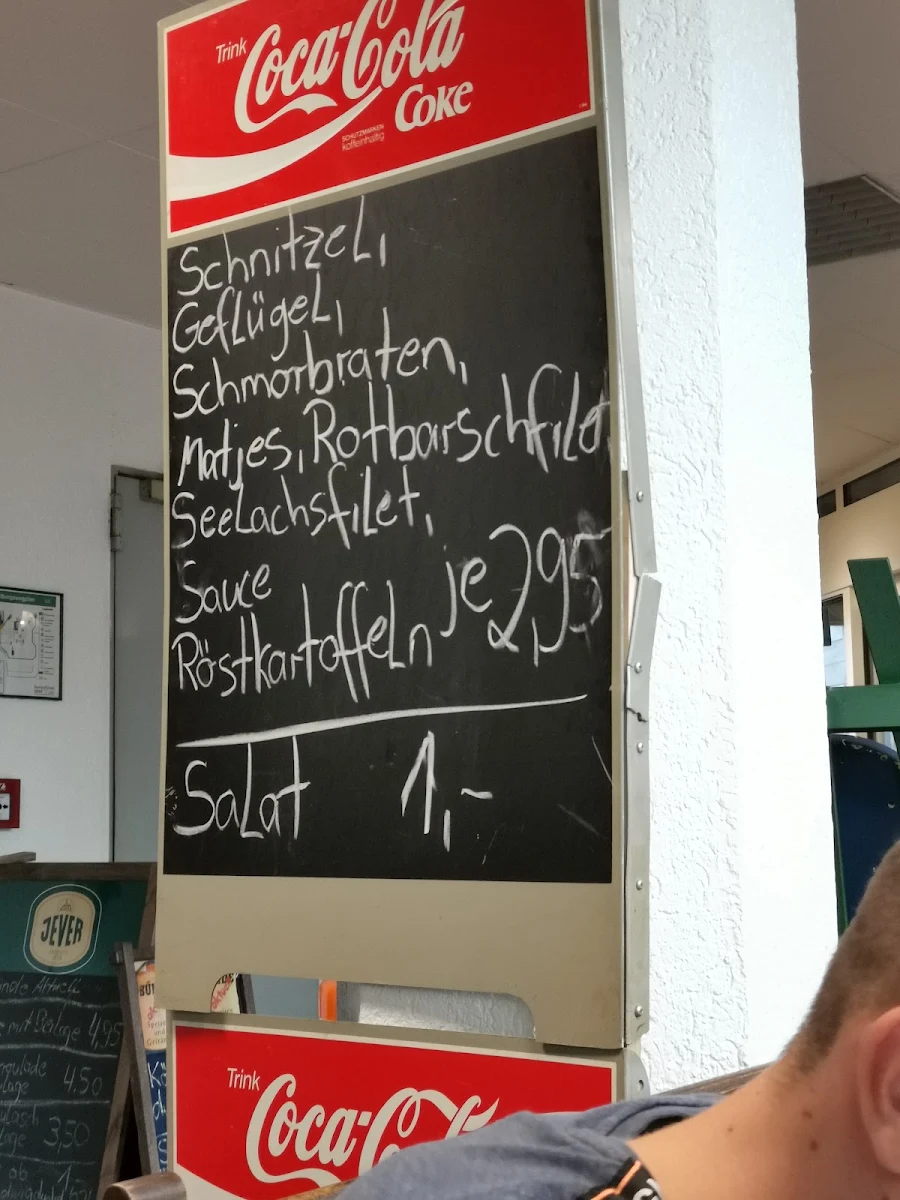 Trink
Coca-Cola
Coke
SCHUTZMARKEN
koffeinhaltig
Schnitzel,
Geflügel,
Schmorbraten,
Matjes, Rotbarschfilet,
Seelachsfilet,
Sauce
Röstkartoffeln je 2,95
Salat 1,-
JEVER
4,95
4.50
3,50
Trink
Coca-Cola